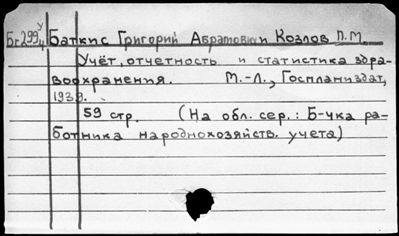 Бг299ч Баткис Григорий Абрамович и Козлов П.М.
Учёт, отчетность и статистика здра-
воохранения. М.-Л., Госпланиздат,
1939.
59 стр. (На обл. сер.: Б-чка ра-
ботника народнохозяйств. учета)